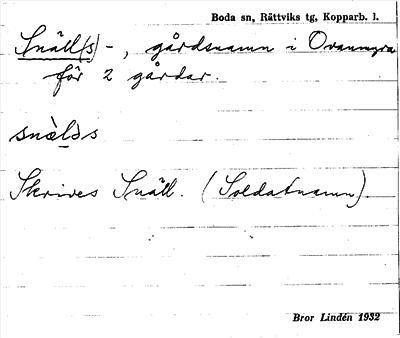 Boda sn, Rättviks tg, Kopparb. l.
Snäll(s)-, gårdsnamn i Ovanmyra
för 2 gårdar.
snàl̲ds
Skrives Snäll. (Soldatnamn).
Bror Lindén 1932